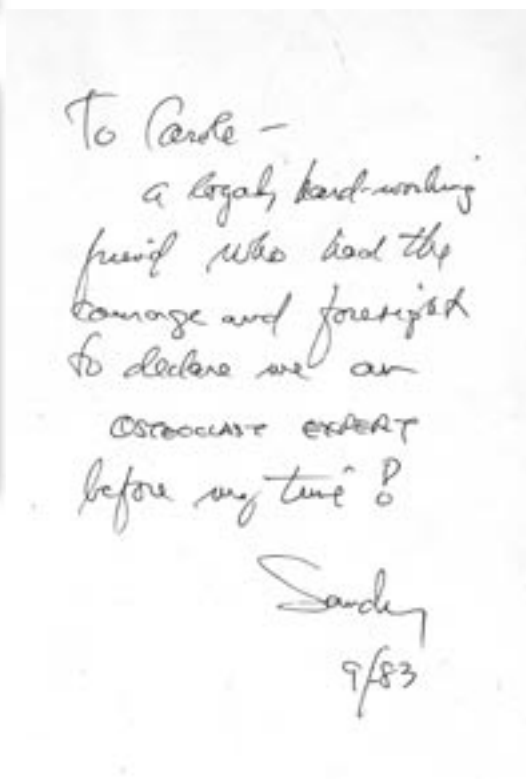 To Carole –
a loyal, hard-working
friend who had the
courage and foresight
to declare me an
OSTEOCLAST EXPERT
before my time!
Sandy
9/83